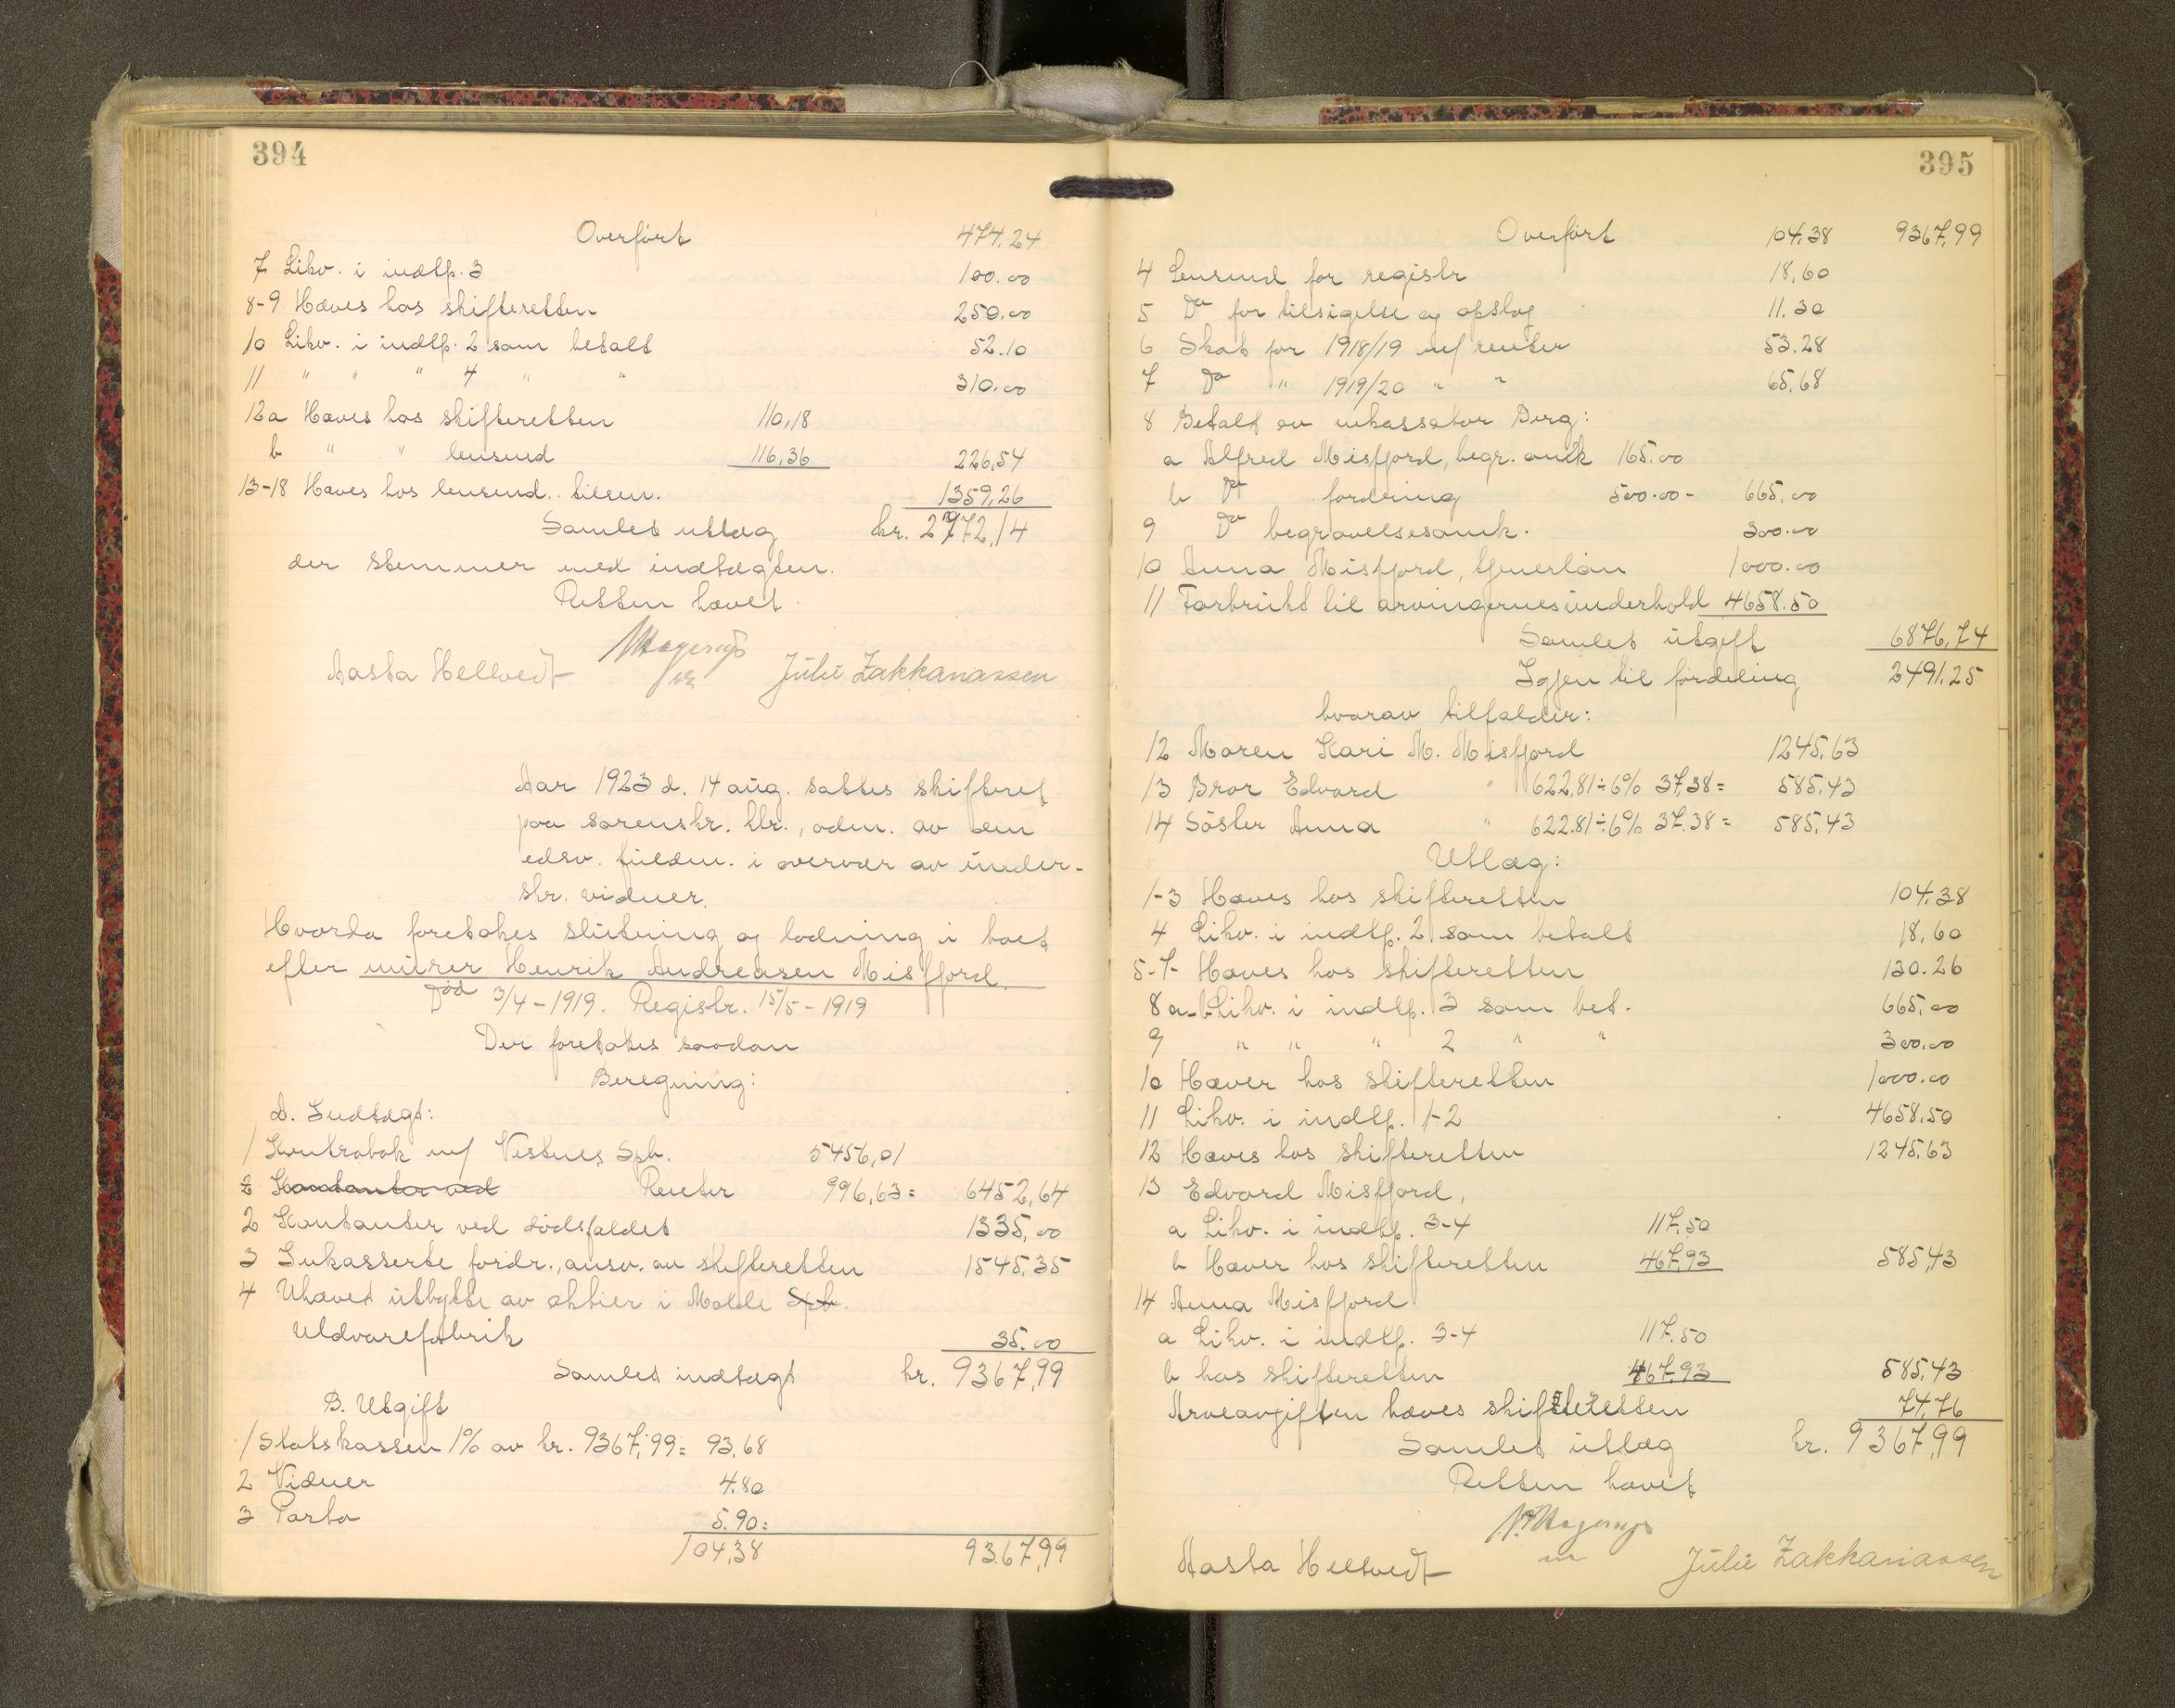 394
Overført 474.24
7 Likv. i indtp. 3 100.00
8-9 Hæves hos skifteretten 250.00
10 Likv. i indtp. 2 som betalt 52.10
11 " " " 4 " " 310.00
12a Hæves hos skifteretten 110,18
b " " lensmd 116,36 226,54
13-18 Hæves hos lensmd. tilsm. 1359,26
Samlet utlæg kr. 2972,14
der stemmer med indtægten.
Retten hævet.
Aasta Hellvedt Julie Zakkariassen
Aar 1923 d. 14 aug. sattes skifteret
paa sorenskr. ktr., adm. av den
edsv. fuldm. i overvær av under-
skr. vidner.
Hvorda foretokes slutning og lodning i boet
efter murer Henrik Andreasen Misfjord.
Død 3/4-1919. Registr. 15/5-1919
Der foretokes saadan
Beregning:
A. Indtægt:
1 Kontrabok m/ Vestnes Spb. 5456,01
2 Kontanter ved Renter 996,63= 6452,64
2 Kontanter ved dødsfaldet 1335,00
3 Inkasserte fordr., ansv. av skifteretten 1545,35
4 Uhævet utbytte av aktier i Molde Spb.
Uldvarefabrik 35.00
Samlet indtægt kr. 9367,99
B. Utgift
1 Statskassen 1% av kr. 9367,99= 93,68
2 Vidner 4.80
3 Porto 5.90=
104,38 9367,99
395
Overført 104.38 9367,99
4 Lensmd for registr 18,60
5 Do for tilsigelse og opslag 11.30
6 Skat for 1918/19 m/ renter 53.28
7 Do " 1919/20 " " 65,68
8 Betalt av inkassator Berg:
a Alfred Misfjord, begr. omk 165.00
b Do fordring 500.00- 665,00
9 Do begravelsesomk. 300.00
10 Anna Misfjord, tjenerløn 1000.00
11 Forbrukt til arvingernes underhold 4658.50
Samlet utgift 6876,74
Igjen til fordeling 2491.25
hvorav tilfalder:
12 Maren Kari M. Misfjord 1245,63
13 Bror Edvard " 622,81÷6% 37,38= 585,43
14 Søster Anna " 622.81÷6% 37.38= 585,43
Utlæg:
1-3 Hæves hos skifteretten 104.38
4 Likv. i indtp. 2 som betalt 18,60
5-7 Hæves hos skifteretten 130.26
8 a-b Likv. i indtp. 3 som bet. 665,00
9 " " " 2 " " 300.00
10 Hæver hos skifteretten 1000.00
11 Likv. i indtp. 1-2 4658,50
12 Hæves hos skifteretten 1245,63
13 Edvard Misfjord,
a Likv. i indtp. 3-4 117,50
b Hæver hos skifteretten 467,93 585,43
14 Anna Misfjord
a Likv. i indtp. 3-4 117.50
b hos skifteretten 467.93 585,43
Arveavgiften hæves skifteretten 74,76
Samlet utlæg kr. 9367,99
Retten hævet
Aasta Hellvedt Julie Zakkariassen